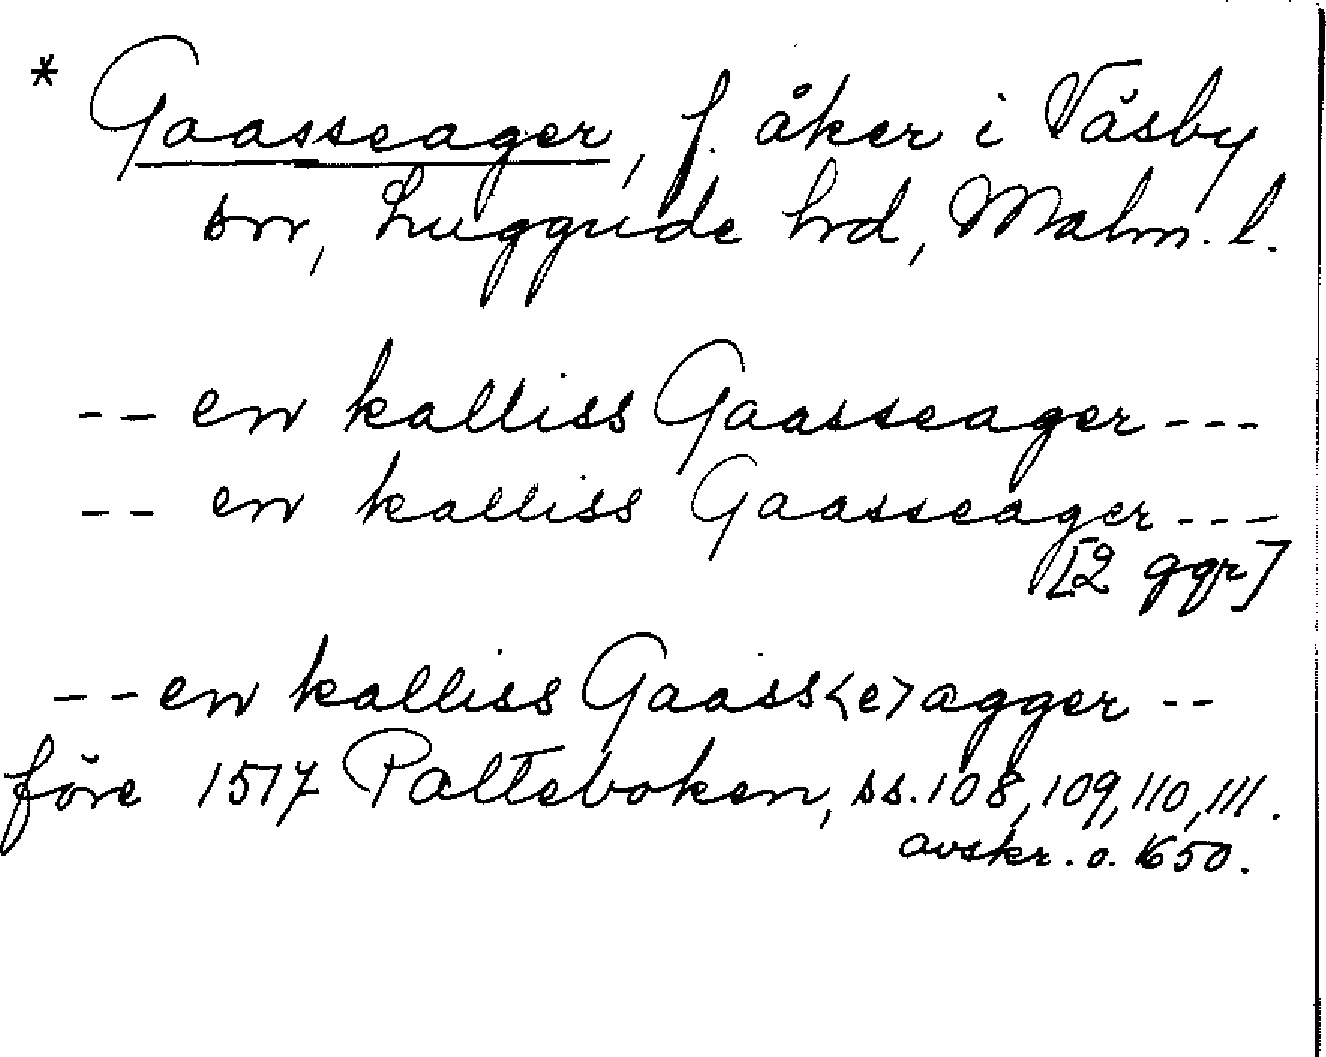 * Gaasseager, f. åker i Väsby
sn, Luggude hrd, Malm. l.
-- en kalliss Gaasseager ---
-- en kalliss Gaasseager ---
[2 ggr]
-- en kalliss Gaass<e>agger --
före 1517 Palteboken, ss. 108, 109, 110, 111.
avskr. o. 1650.